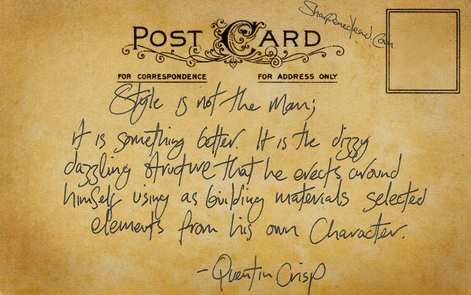 Sharpenedlead.com
POST CARD
FOR CORRESPONDENCE FOR ADDRESS ONLY
Style is not the man;
it is something better. It is the dizzy
dazzling structure that he erects around
himself using as building materials selected
elements from his own character.
-Quentin Crisp